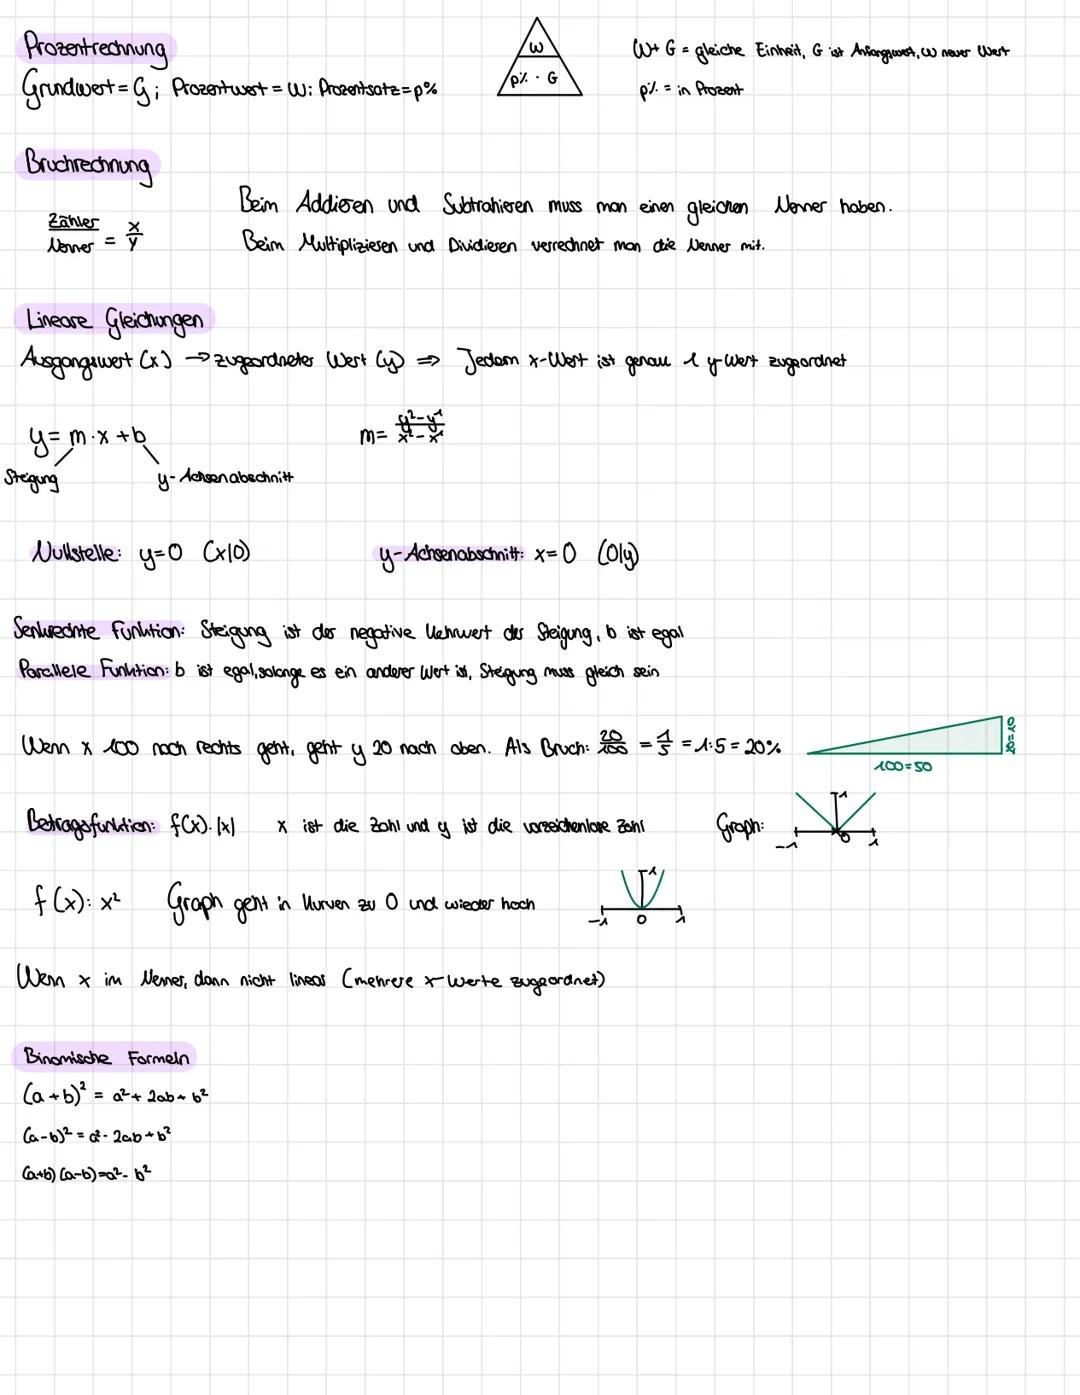 Prozentrechnung
Grundwert = G; Prozentwert = W; Prozentsatz = p%
W
p% · G
W + G = gleiche Einheit, G ist Anfangswert, W neuer Wert
p% = in Prozent
Bruchrechnung
Zähler/Nenner = x/y
Beim Addieren und Subtrahieren muss man einen gleichen Nenner haben.
Beim Multiplizieren und Dividieren verrechnet man die Nenner mit.
Lineare Gleichungen
Ausgangswert (x) → zugeordneter Wert (y) ⇒ Jedem x-Wert ist genau 1 y-Wert zugeordnet
y = m·x + b
m = y²-y¹/x²-x¹
Steigung
y-Achsenabschnitt
Nullstelle: y=0 (x|0)
y-Achsenabschnitt: x=0 (0|y)
Senkrechte Funktion: Steigung ist der negative Kehrwert der Steigung, b ist egal
Parallele Funktion: b ist egal, solange es ein anderer Wert ist, Steigung muss gleich sein
Wenn x 100 nach rechts geht, geht y 20 nach oben. Als Bruch: 20/100 = 1/5 = 1:5 = 20%
100=50
20=10
Betragsfunktion: f(x): |x| x ist die Zahl und y ist die vorzeichenlose Zahl Graph:
1
-1 0 1
f(x): x² Graph geht in Kurven zu 0 und wieder hoch
1
-1 0 1
Wenn x im Nenner, dann nicht linear (mehrere x-Werte zugeordnet)
Binomische Formeln
(a+b)² = a² + 2ab + b²
(a-b)² = a² - 2ab + b²
(a+b)(a-b) = a² - b²